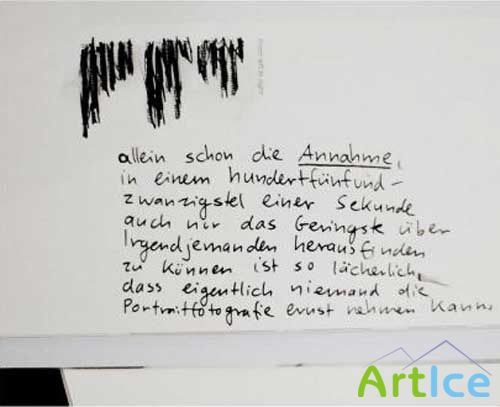 allein schon die Annahme,
in einem hundertfünfund-
zwanzigstel einer Sekunde
auch nur das Geringste über
Irgendjemanden herausfinden
zu können ist so lächerlich,
dass eigentlich niemand die
Portraitfotografie ernst nehmen kann.
ArtIce